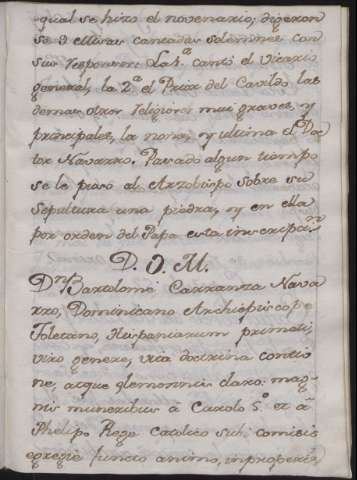 qual se hizo el novenario; digeron
se 9 Missas cantadas solemnes con
sus responsos: La 1.ª cantó el vicario
general, la 2.ª el Prior del Cavildo las
demas otros religiosos mui graves, y
principales, la nona, y ultima el Doc
tor Navarro. Pasado algun tiempo
se le puso al Arzobispo sobre su
sepultura una piedra, y en ella
por orden del Papa esta inscripcⁿ
D. O. M.
Dnⁱ Bartolomé Carranza Nava
rro, Dominicano Archiepiscopo
Toletano, Hispaniarum primati,
viro genere, vita doctrina contio
ne, atque elemosinis claro: mag-
nis muneribus à Carolo 5.º et à
Phelipo Rege Catolico sibi comisis
egregie functo animo, in prosperis